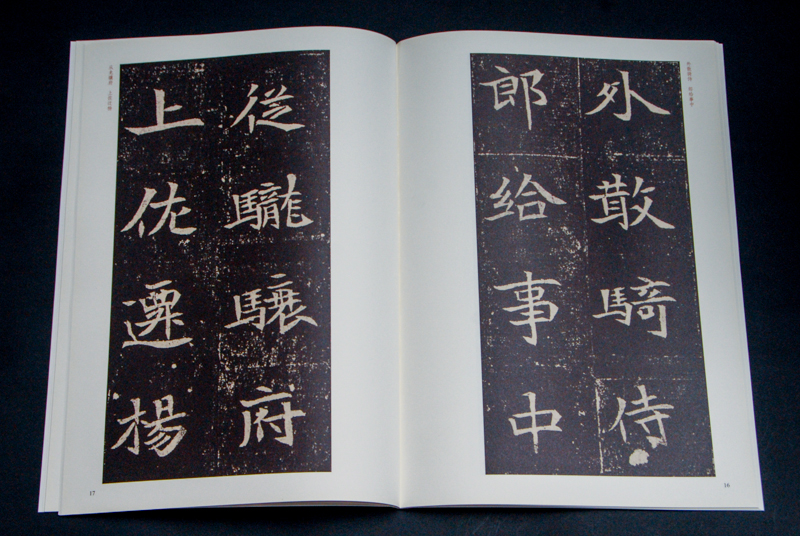 外散騎侍
郎給事中
16
從䮾驤府
上佐遷楊
17